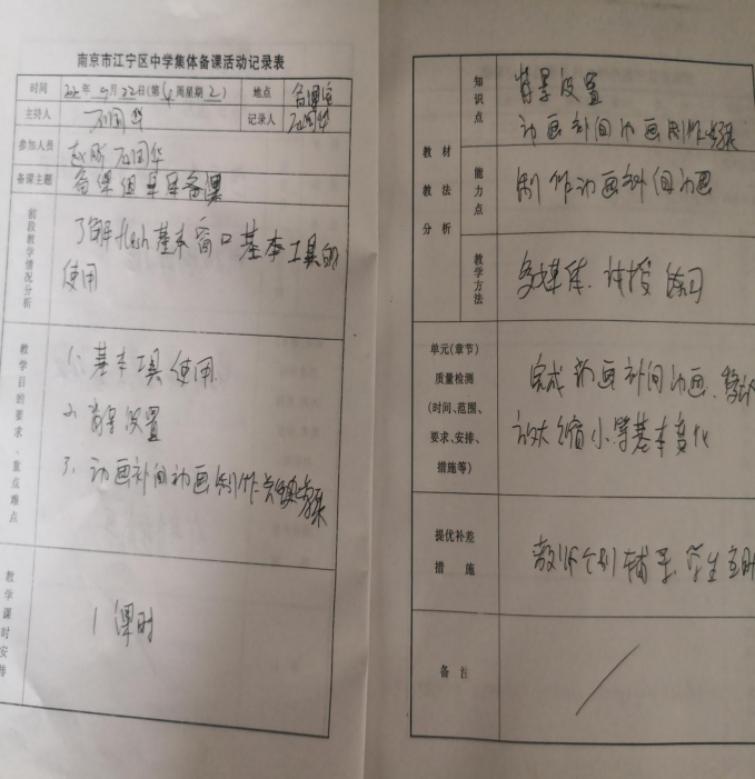 南京市江宁区中学集体备课活动记录表
时间 年 9月22日(第4周星期2) 地点 备课室
主持人 石国华 记录人 石国华
参加人员 石国华
备课主题 备课组单元备课
前段教学情况分析
了解flash基本窗口基本工具的
使用
教学目的要求、重点难点
1、基本工具使用
2、背景设置
3、动画补间动画制作步骤
教学课时安排
1课时
教材教法分析
知识点
背景设置
动画补间动画制作步骤
能力点
制作动画补间动画
教学方法
多媒体、讲授 练习
单元(章节)
质量检测
(时间、范围、
要求、安排、
措施等)
完成动画补间动画、移动
放大缩小等基本变化
提优补差
措施
教师个别辅导、学生互助
备注